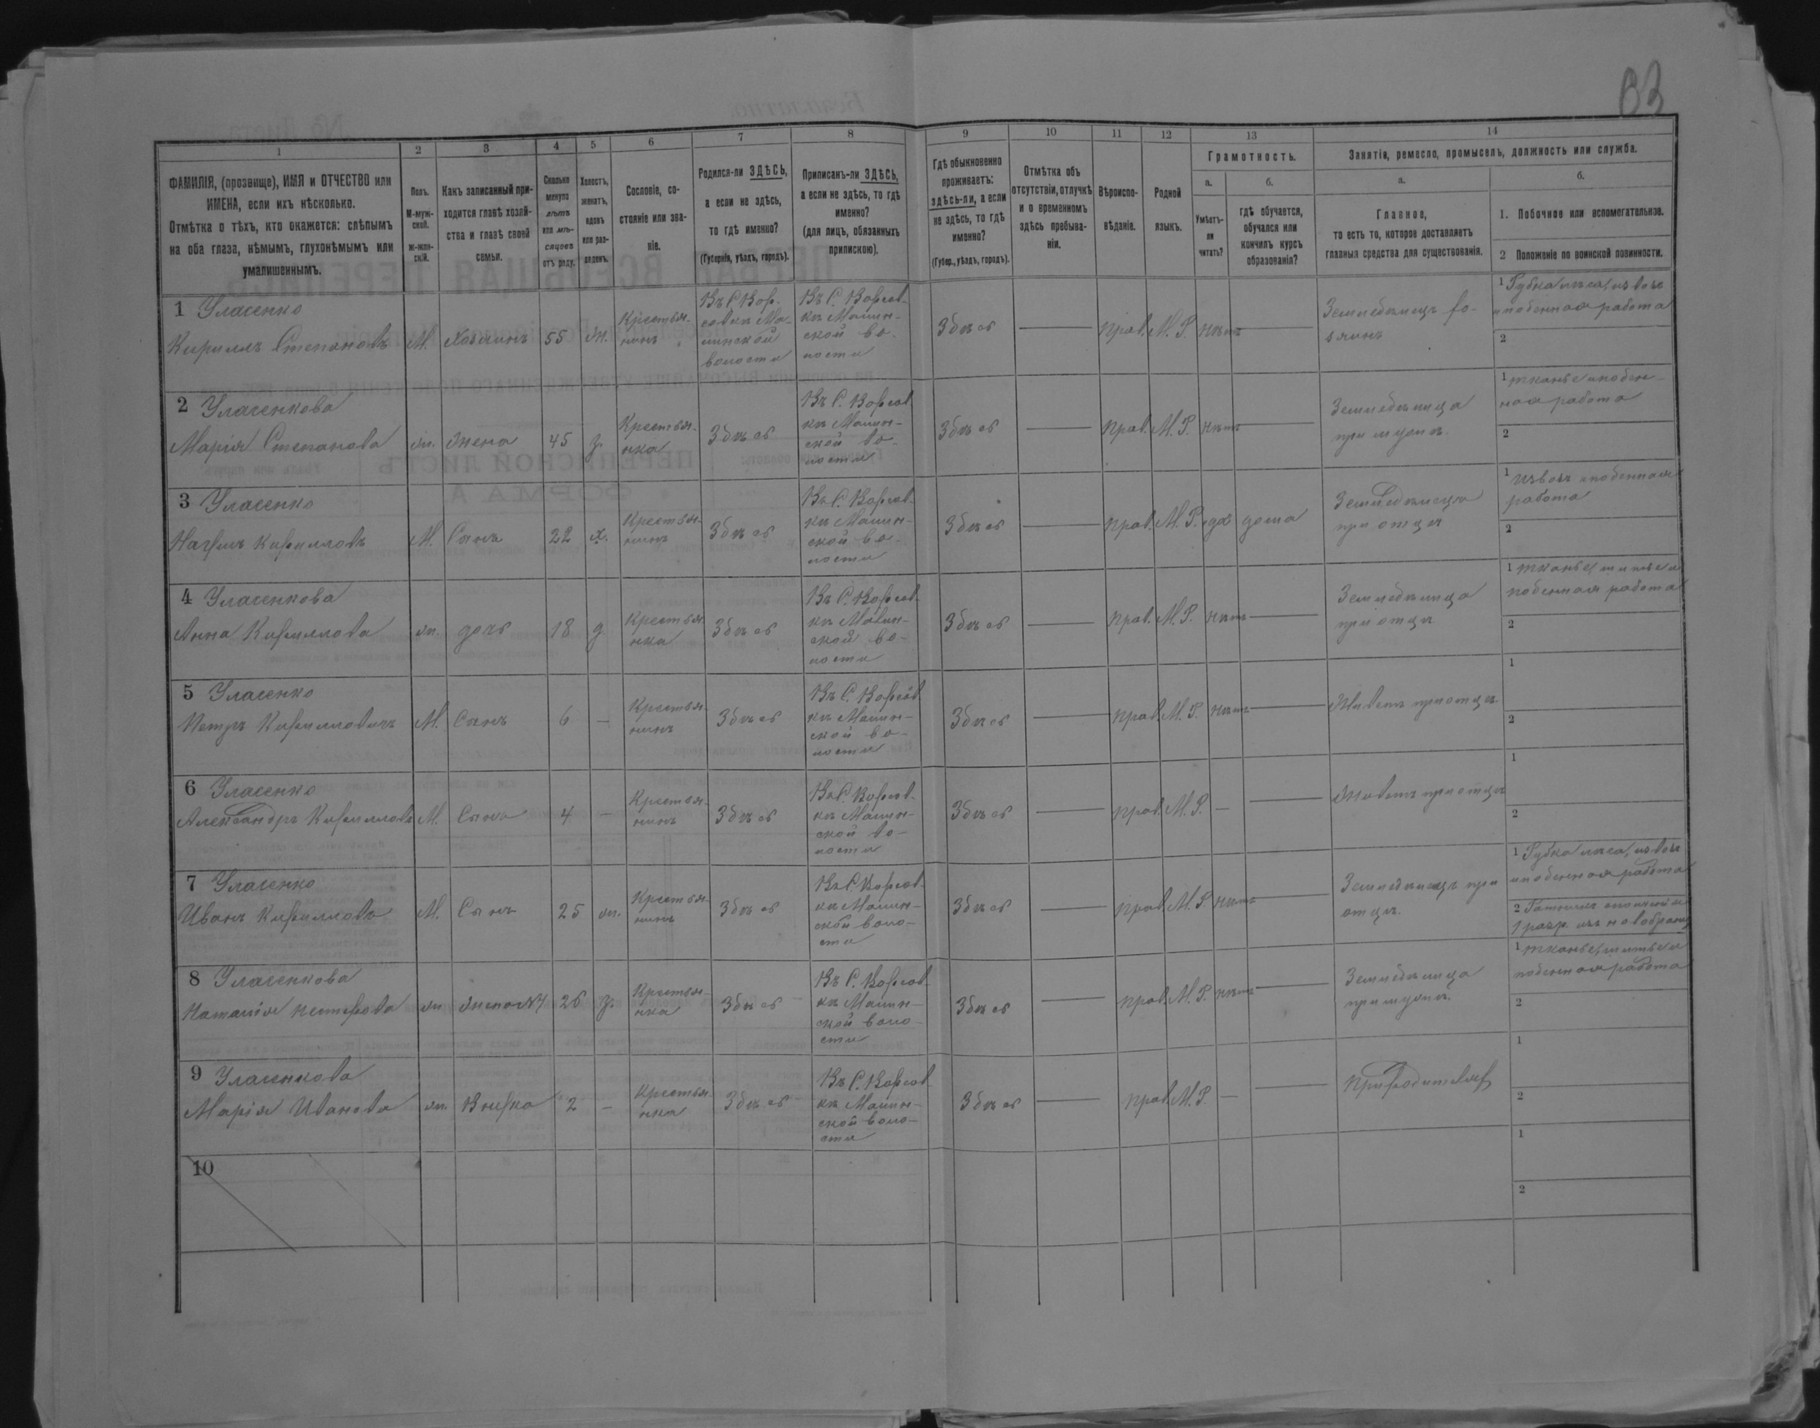 63
1 2 3 4 5 6 7 8 9 10 11 12 13 14
ФАМИЛІЯ, (прозвище), ИМЯ и ОТЧЕСТВО или
ИМЕНА, если ихъ нѣсколько.
Отмѣтка о тѣхъ, кто окажется: слѣпымъ
на оба глаза, нѣмымъ, глухонѣмымъ или
умалишеннымъ.
Полъ.
М-муж-
ской.
ж-жен-
скій.
Какъ записанный при-
ходится главѣ хозяй-
ства и главѣ своей
семьи.
Сколько
минуло
лѣтъ
или мѣ-
сяцевъ
отъ роду.
Холостъ,
женатъ,
вдовъ
или раз-
веденъ.
Сословіе, со-
стояніе или зва-
ніе.
Родился-ли ЗДѢСЬ,
а если не здѣсь,
то гдѣ именно?
(Губернія, уѣздъ, городъ).
Приписанъ-ли ЗДѢСЬ,
а если не здѣсь, то гдѣ
именно?
(для лицъ, обязанныхъ
припискою).
Гдѣ обыкновенно
проживаетъ:
здѣсь-ли, а если
не здѣсь, то гдѣ
именно?
(Губер., уѣздъ, городъ).
Отмѣтка объ
отсутствіи, отлучкѣ
и о временномъ
здѣсь пребыва-
ніи.
Вѣроиспо-
вѣданіе.
Родной
языкъ.
Грамотность.
а.
Умѣетъ-
ли
читать?
б.
гдѣ обучается,
обучался или
кончилъ курсъ
образованія?
Занятіе, ремесло, промыселъ, должность или служба.
а.
Главное,
то есть то, которое доставляетъ
главныя средства для существованія.
б.
1. Побочное или вспомогательное.
2 Положеніе по воинской повинности.
1 Уласенко
Кириллъ Степановъ
М. Хозяинъ 55 жн.
Крестья-
нинъ
Въ С. Кор-
совкѣ Ма-
линской
волости
Въ С. Корсов-
кѣ Малин-
ской во-
лости
Здѣсь
прав. М. Р. нѣтъ
Земледѣлецъ хо-
зяинъ
1 Рубка лѣса, извозъ
и поденная работа
2
2 Уласенкова
Марія Степанова
ж. Жена 45 з.
Крестья-
нка
Здѣсь
Въ С. Корсов-
кѣ Малин-
ской во-
лости
Здѣсь
прав. М. Р. нѣтъ
Земледѣлица
при мужѣ.
1 тканье и поден-
ная работа
2
3 Уласенко
Кирилловъ
М. Сынъ 22 х.
Крестья-
нинъ
Здѣсь
Въ С. Корсов-
кѣ Малин-
ской во-
лости
Здѣсь
прав. М. Р. да дома
Земледѣлецъ
при отцѣ
1 извозъ и поденная
работа
2
4 Уласенкова
Анна Кириллова
ж. дочь 18 д.
Крестья-
нка
Здѣсь
Въ С. Корсов-
кѣ Малин-
ской во-
лости
Здѣсь
прав. М. Р. нѣтъ
Земледѣлица
при отцѣ
1 тканье, шитье и
поденная работа
2
5 Уласенко
Петръ Кирилловичъ
М. Сынъ 6 —
Крестья-
нинъ
Здѣсь
Въ С. Корсов-
кѣ Малин-
ской во-
лости
Здѣсь
прав. М. Р. нѣтъ
Живетъ при отцѣ
1
2
6 Уласенко
Александръ Кирилловъ
М. Сынъ 4 —
Крестья-
нинъ
Здѣсь
Въ С. Корсов-
кѣ Малин-
ской во-
лости
Здѣсь
прав. М. Р. —
Живетъ при отцѣ
1
2
7 Уласенко
Иванъ Кирилловъ
М. Сынъ 25 жн.
Крестья-
нинъ
Здѣсь
Въ С. Корсов-
кѣ Малин-
ской воло-
сти
Здѣсь
прав. М. Р. нѣтъ
Земледѣлецъ при
отцѣ.
1 Рубка лѣса, извозъ
и поденная работа
2 Ратникъ ополченія
1 разр. изъ новобранц
8 Уласенкова
Наталія
ж. жена №7 26 з.
Крестья-
нка
Здѣсь
Въ С. Корсов-
кѣ Малин-
ской воло-
сти
Здѣсь
прав. М. Р. нѣтъ
Земледѣлица
при мужѣ.
1 тканье, шитье и
поденная работа
2
9 Уласенкова
Марія Иванова
ж. Внучка 2 —
Крестья-
нка
Здѣсь
Въ С. Корсов-
кѣ Малин-
ской воло-
сти
Здѣсь
прав. М. Р. —
При родителяхъ
1
2
10
1
2